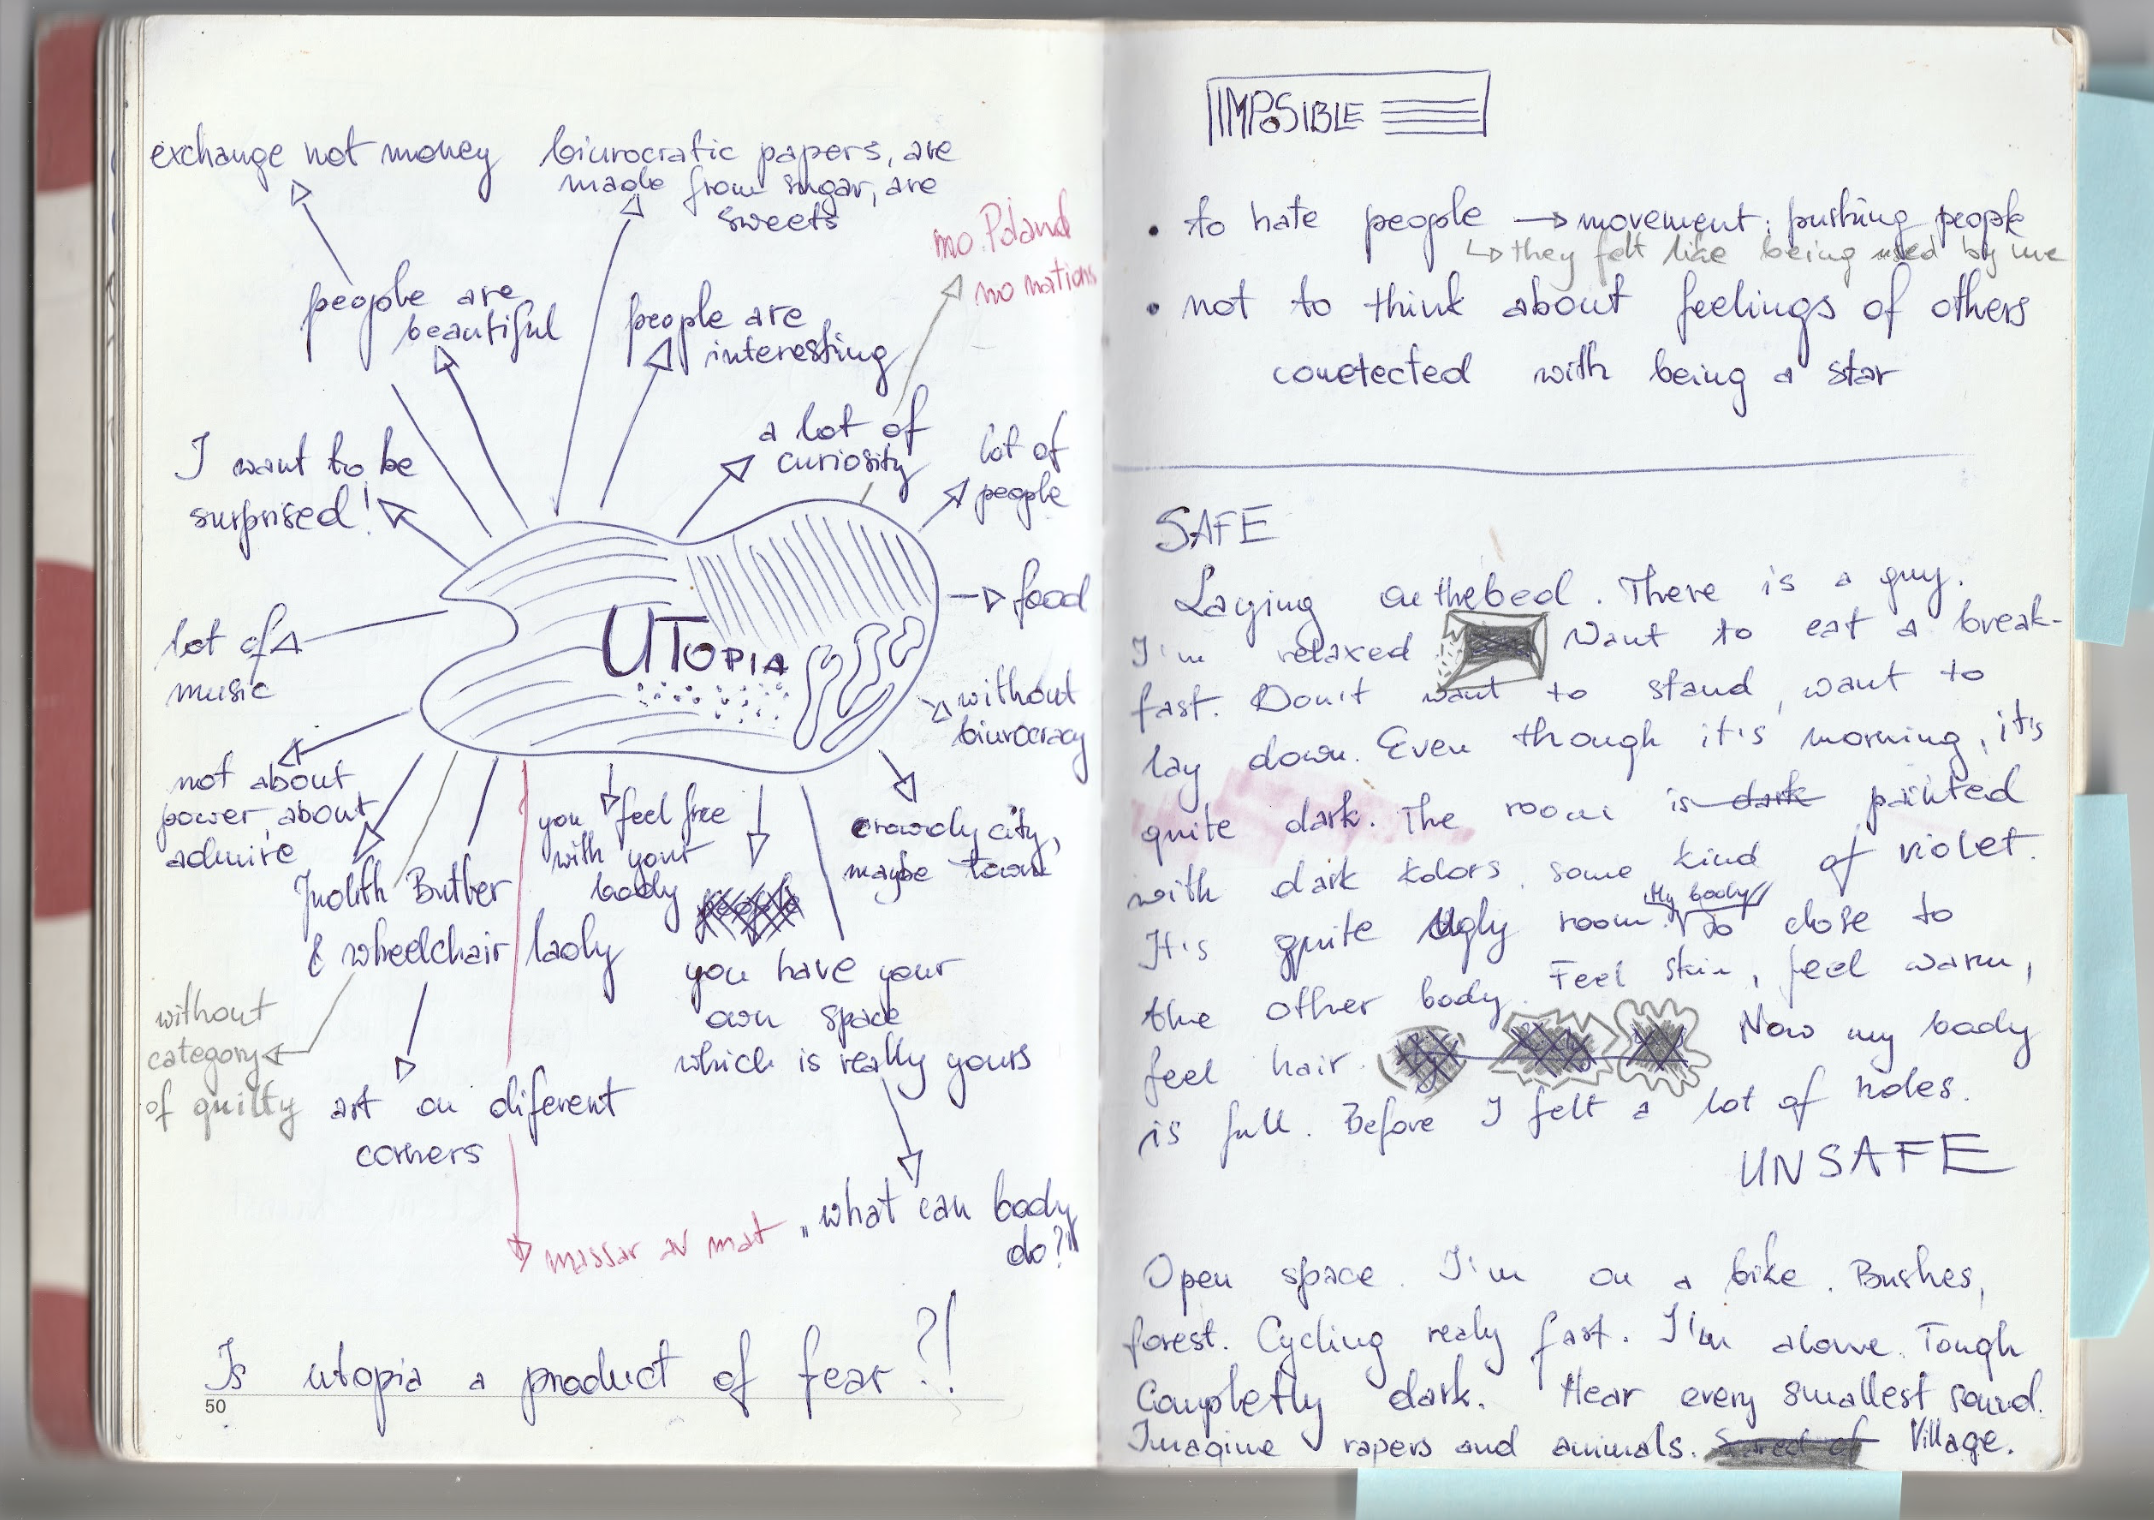 exchange not money
biurocratic papers, are
made from sugar, are
sweets
no Poland
no nations
people are
beautiful
people are
interesting
a lot of
curiosity
lot of
people
I want to be
surprised!
food
UTOPIA
lot of
music
without
biurocracy
not about
power, about
admire
Judith Butler
& wheelchair lady
you feel free
with your
body
crowdy city,
maybe town
you have your
own space
which is really yours
without
category
of quilty
art on diferent
corners
massar av mat
„what can body
do?"
Is utopia a product of fear?!
50
IMPOSIBLE
• to hate people → movement: pushing people
↳ they felt like being used by me
• not to think about feelings of others
conetected with being a star
SAFE
Laying on the bed. There is a guy.
I'm relaxed Want to eat a break-
fast. Don't want to stand, want to
lay down. Even though it's morning, it's
quite dark. The room is dark painted
with dark kolors, some kind of violet.
It's quite Ugly room. My body So close to
the other body. Feel skin, feel warm,
feel hair. Now my body
is full. Before I felt a lot of holes.
UNSAFE
Open space. I'm on a bike. Bushes,
forest. Cycling realy fast. I'm alone. Tough
Completly dark. Hear every smallest sound.
Imagine rapers and animals. Scared of Village.